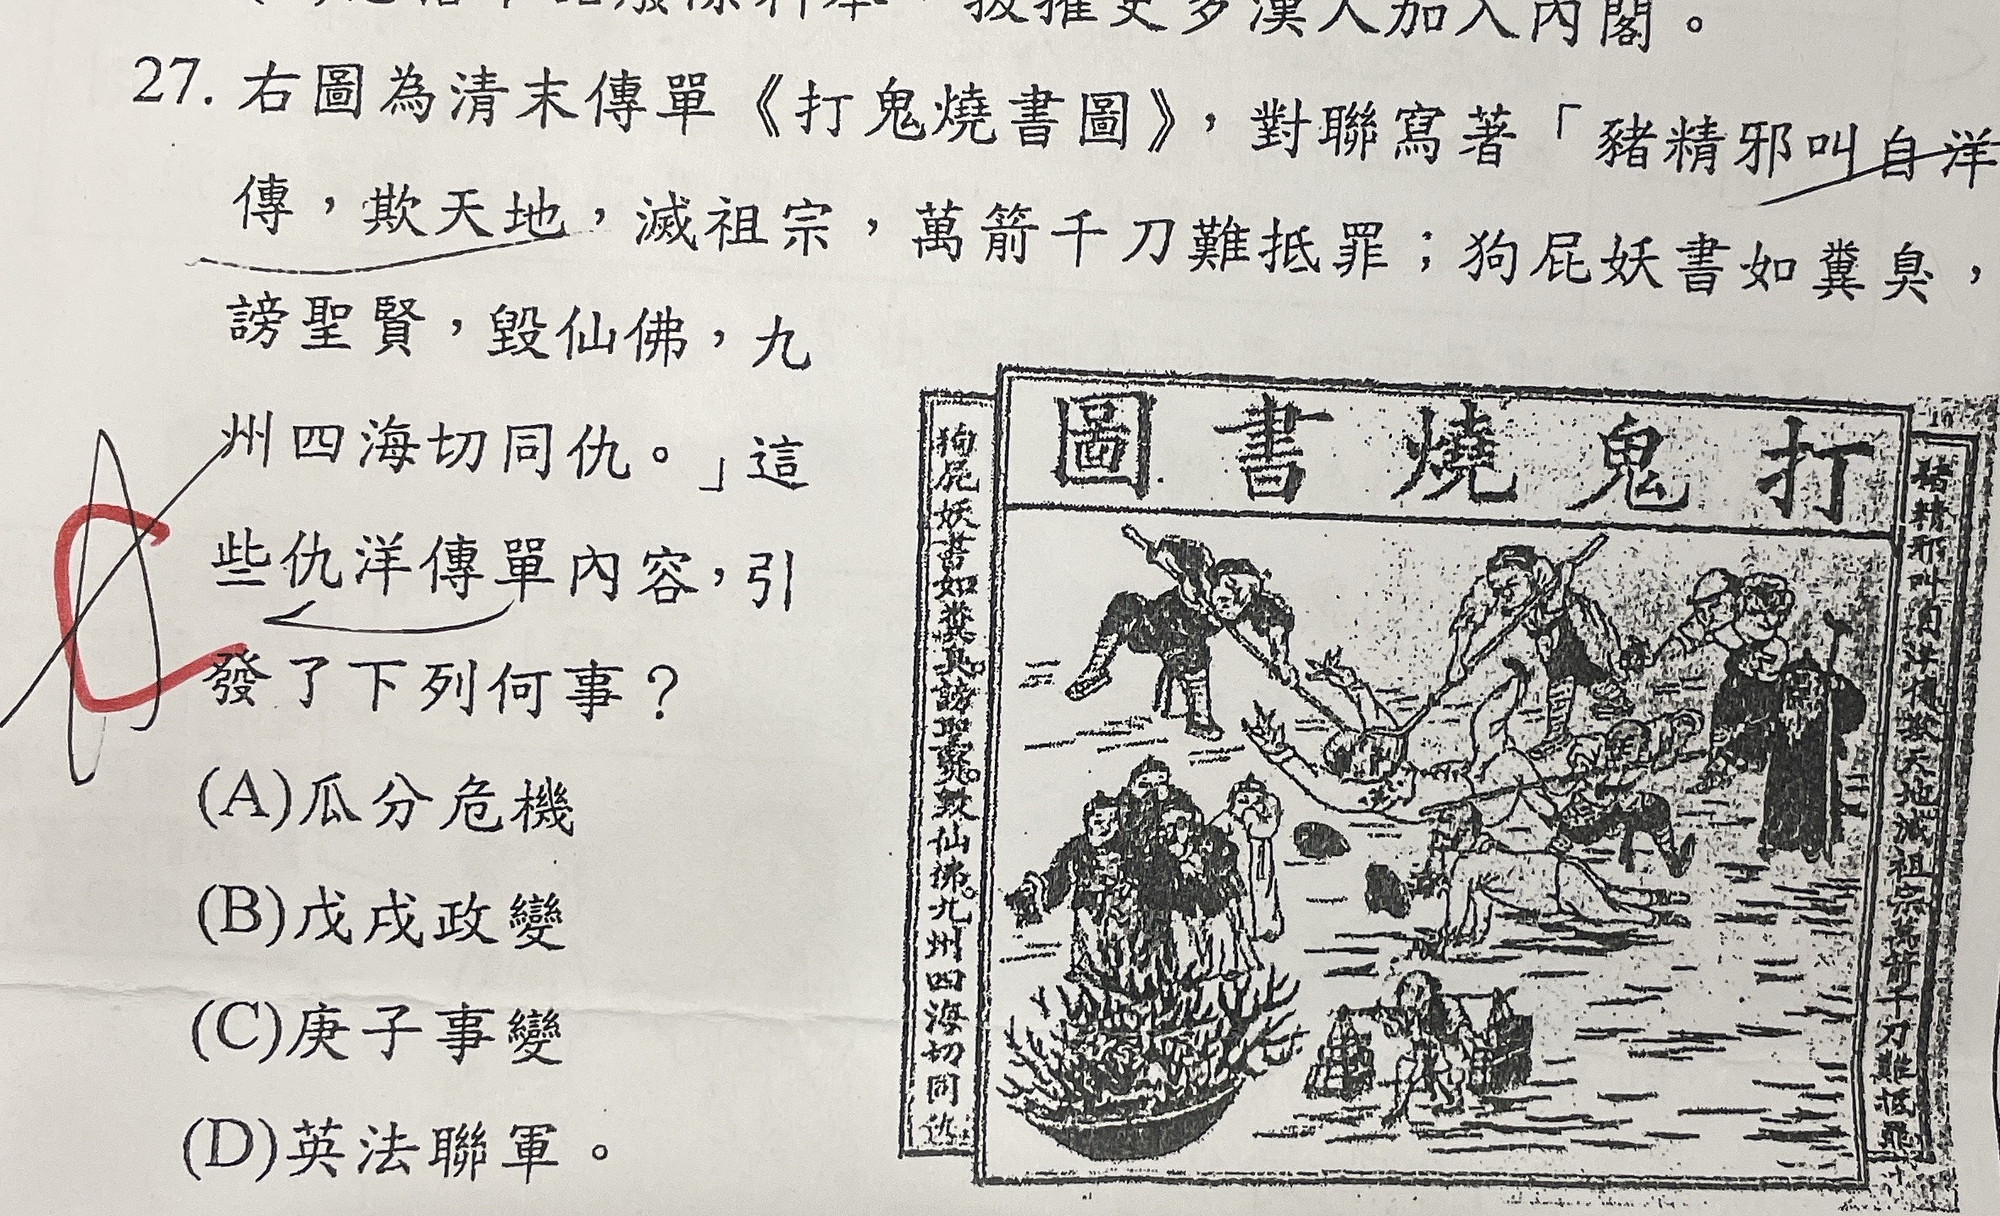 拔擢更多漢人加入內閣。
27. 右圖為清末傳單《打鬼燒書圖》，對聯寫著「豬精邪叫自洋
傳，欺天地，滅祖宗，萬箭千刀難抵罪；狗屁妖書如糞臭，
謗聖賢，毀仙佛，九
州四海切同仇。」這
些仇洋傳單內容，引
發了下列何事？
(A)瓜分危機
(B)戊戌政變
(C)庚子事變
(D)英法聯軍。
打鬼燒書圖
豬精邪叫自洋傳欺天地滅祖宗萬箭千刀難抵罪
狗屁妖書如糞臭謗聖賢毀仙佛九州四海切同仇
C